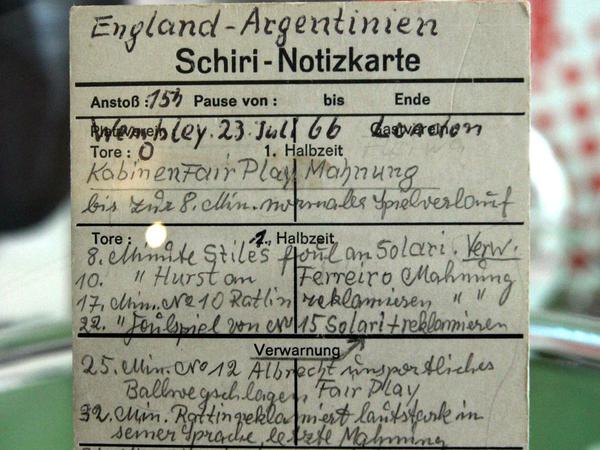 England-Argentinien
Schiri-Notizkarte
Anstoß: 15h Pause von: bis Ende
Platzverein Gastverein
Wembley. 23. Juli 66 London
Tore: 0 1. Halbzeit
Kabinen Fair Play Mahnung
bis zur 8. Min. normales Spielverlauf
Tore: 1. Halbzeit
8. Minute Stiles foul an Solari. Verw.
10. " Hurst an Ferreiro Mahnung
17. Min. No 10 Rattin reklamieren " "
22. " Foulspiel von No 15 Solari + reklamieren
Verwarnung
25. Min. No 12 Albrecht unsportliches
Ballwegschlagen, Fair Play
32. Min. Rattin reklamiert lautstark in
seiner Sprache, letzte Mahnung